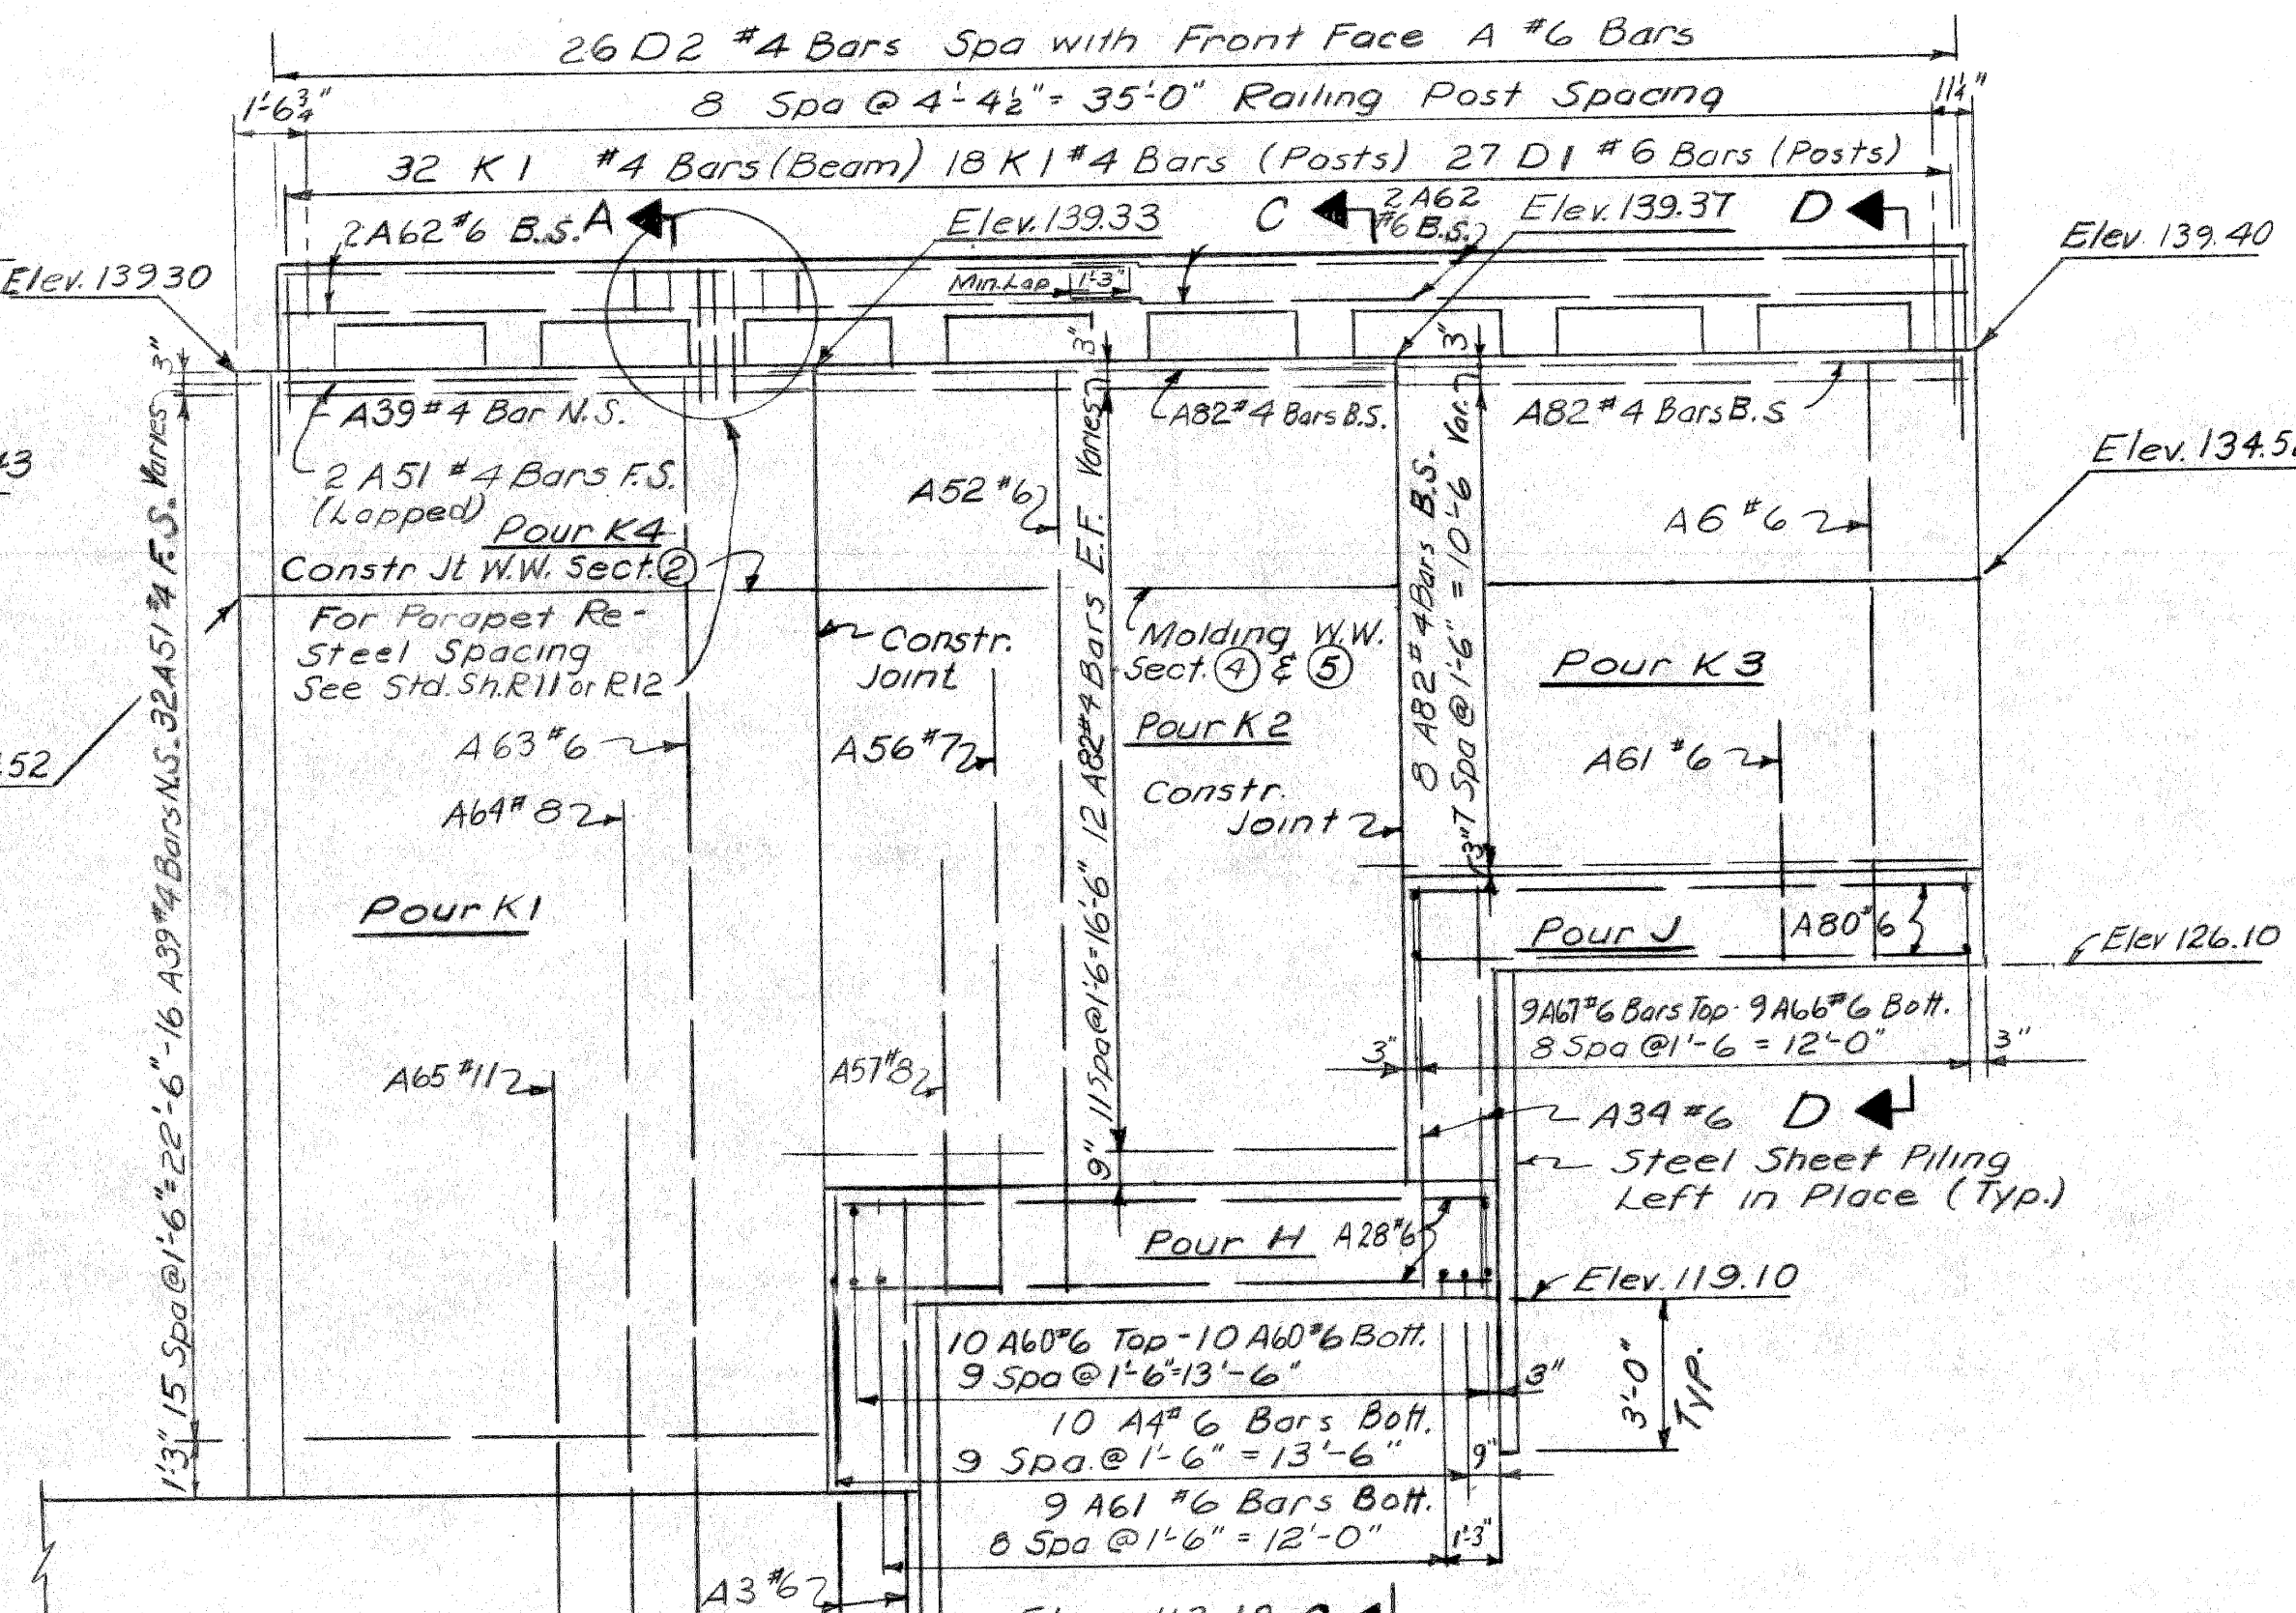 26 D2 #4 Bars Spa with Front Face A #6 Bars
1'-6¾"
8 Spa @ 4'-4½" = 35'-0" Railing Post Spacing
11¼"
32 K1 #4 Bars (Beam) 18 K1 #4 Bars (Posts) 27 D1 #6 Bars (Posts)
2A62 #6 B.S.
A
Elev. 139.33
C
2 A62
#6 B.S.
Elev. 139.37
D
Elev. 139.40
Elev. 139.30
Min. Lap
1'-3"
3"
3"
3"
A39 #4 Bar N.S.
A82 #4 Bars B.S.
A82 #4 Bars B.S
2 A51 #4 Bars F.S.
(Lapped)
Pour K4
Constr Jt W.W. Sect. 2
A52 #6
A6 #6
Elev. 134.5
For Parapet Re-
Steel Spacing
See Std. Sh. R11 or R12
Constr.
Joint
Molding W.W.
Sect. 4 & 5
Pour K3
A63 #6
A56 #7
Pour K2
A61 #6
.52
A64 #8
Constr.
Joint
Pour K1
Pour J
A80 #6
Elev 126.10
9A67 #6 Bars Top - 9 A66 #6 Bott.
8 Spa @ 1'-6 = 12'-0"
3"
3"
A65 #11
A57 #8
A34 #6
D
Steel Sheet Piling
Left in Place (Typ.)
Pour H
A28 #6
Elev. 119.10
10 A60 #6 Top - 10 A60 #6 Bott.
9 Spa @ 1'-6" = 13'-6"
3"
3'-0"
Typ.
10 A4 #6 Bars Bott.
9 Spa. @ 1'-6" = 13'-6"
9"
9 A61 #6 Bars Bott.
8 Spa @ 1'-6" = 12'-0"
1'-3"
A3 #6
1'-3" 15 Spa @ 1'-6" = 22'-6" - 16 A39 #4 Bars N.S. 32 A51 #4 F.S. Varies
9" 11 Spa @ 1'-6 = 16'-6" 12 A82 #4 Bars E.F. Varies
8 A82 #4 Bars B.S.
3" 7 Spa @ 1'-6" = 10'-6 Var.